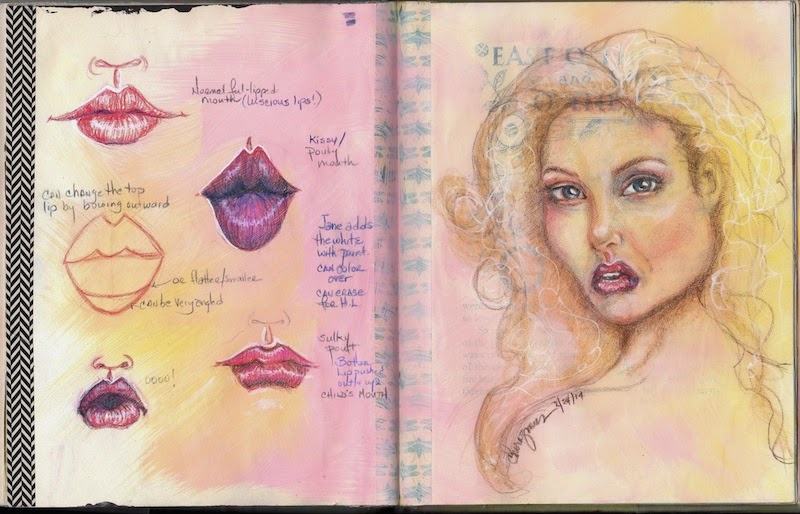 Normal full-lipped
mouth (luscious lips!)
Kissy/
Pouty
mouth
Can change the top
lip by bowing outward
or flatter/smaller
can be very angled
Jane adds
the white
with paint.
can color
over
can erase
for H.L.
oooo!
sulky
pout
Bottom
lip pushed
out & up
CHILD'S MOUTH
EAST O
and
2/24/14